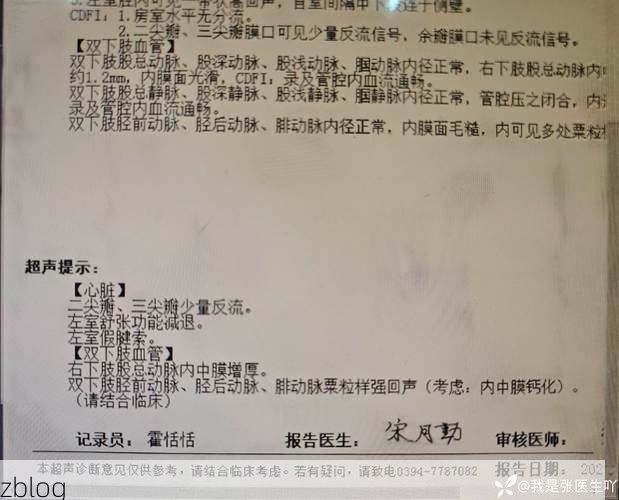 CDFI: 1.房室水平无分流。
2.二尖瓣、三尖瓣膜口可见少量反流信号，余瓣膜口未见反流信号。
【双下肢血管】
双下肢股总动脉、股深动脉、股浅动脉、腘动脉内径正常，右下肢股总动脉内
约1.2mm，内膜面光滑，CDFI：录及管腔内血流通畅。
双下肢股总静脉、股深静脉、股浅静脉、腘静脉内径正常，管腔压之闭合，内
录及管腔内血流通畅。
双下肢胫前动脉、胫后动脉、腓动脉内径正常，内膜面毛糙，内可见多处粟粒样
超声提示：
【心脏】
二尖瓣、三尖瓣少量反流。
左室舒张功能减退。
左室假腱索。
【双下肢血管】
右下肢股总动脉内中膜增厚。
双下肢胫前动脉、胫后动脉、腓动脉粟粒样强回声（考虑：内中膜钙化）。
（请结合临床）
记录员： 霍恬恬 报告医生： 宋月勤 审核医师：
本超声诊断意见仅供参考，请结合临床考虑。若有疑问，请致电0394-7787082 报告日期： 202
zblog
@我是张医生吖